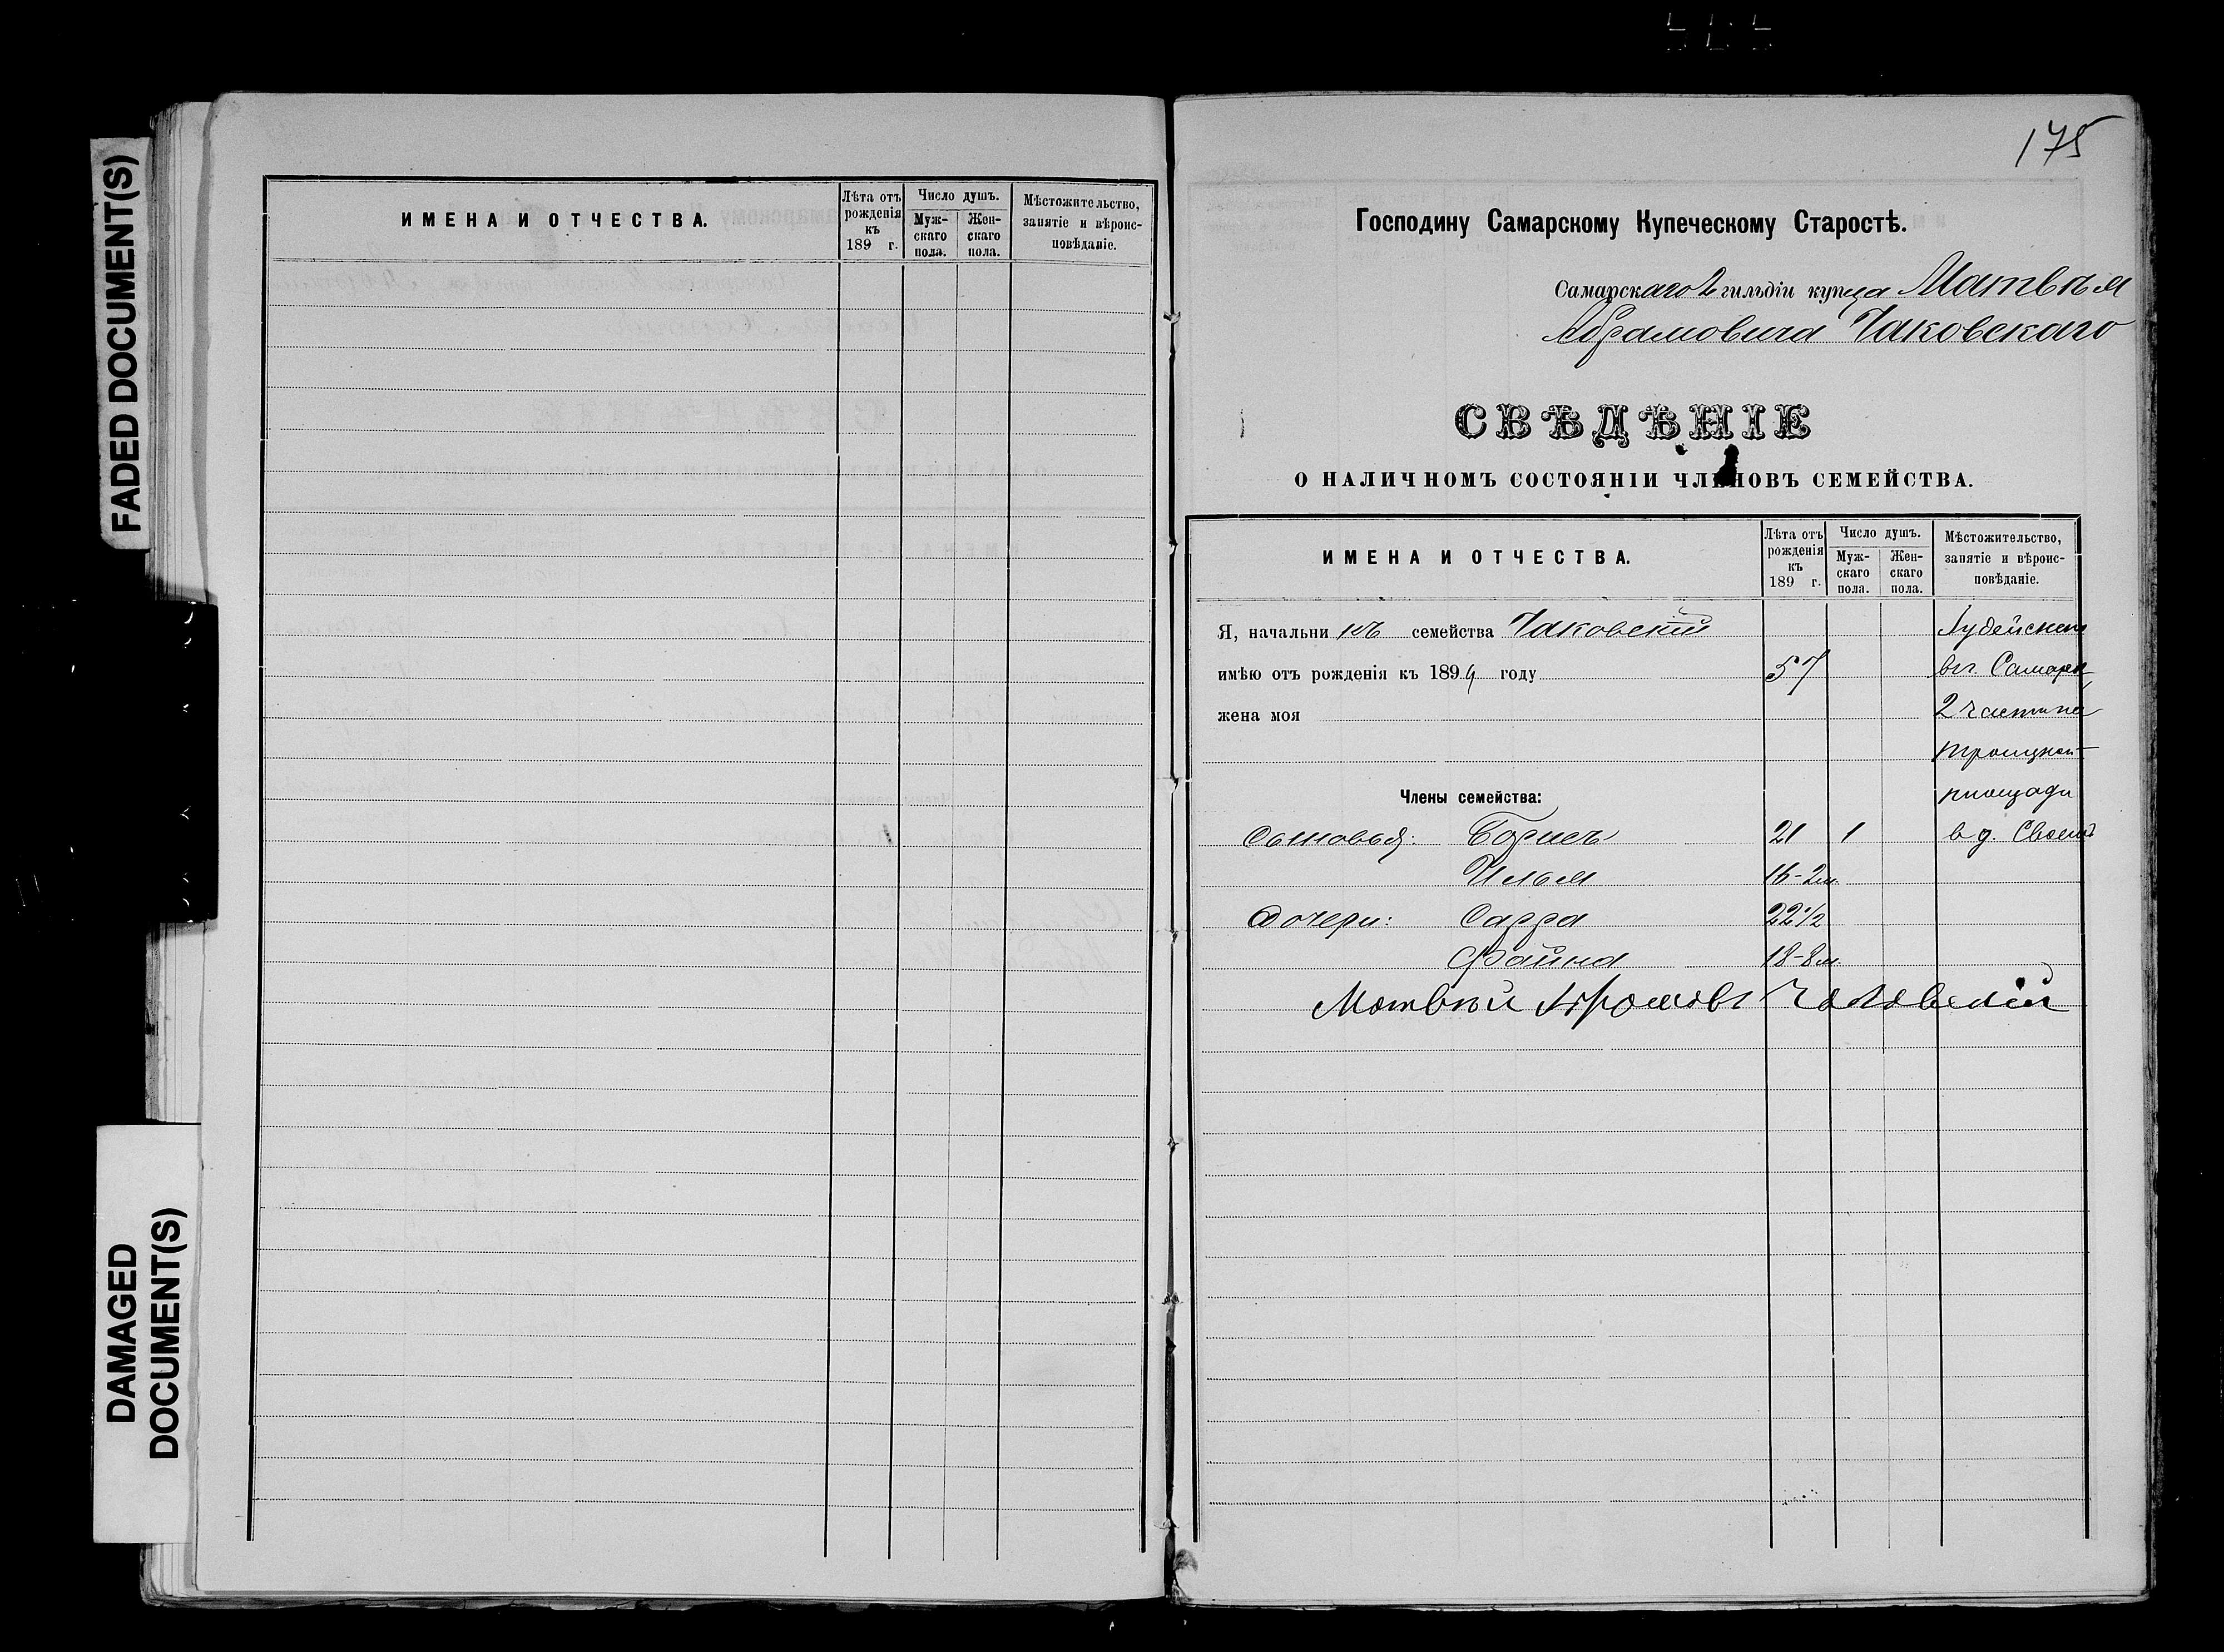 FADED DOCUMENT(S)
DAMAGED
DOCUMENT(S)
ИМЕНА И ОТЧЕСТВА.
Лѣта отъ рожденія къ 189 г.
Число душъ.
Мужскаго пола.
Женскаго пола.
Мѣстожительство, занятіе и вѣроисповѣданіе.
175
Господину Самарскому Купеческому Старостѣ.
Самарскаго 2 гильдіи купца Матвѣя
Абрамовича Чаковскаго
СВѢДѢНІЕ
О НАЛИЧНОМЪ СОСТОЯНІИ ЧЛЕНОВЪ СЕМЕЙСТВА.
ИМЕНА И ОТЧЕСТВА.
Лѣта отъ рожденія къ 189 г.
Число душъ.
Мужскаго пола.
Женскаго пола.
Мѣстожительство, занятіе и вѣроисповѣданіе.
Я, начальникъ семейства Чаковскій
имѣю отъ рожденія къ 1894 году 57 вг. Самарѣ
жена моя 2 части на
троицкой
Члены семейства: площади
Сыновья: Борисъ 21 1 в д. Своемъ
Илья 16-2м.
Дочери: Сарра 22 1/2
Файна 18-8м.
Матвѣй Абрамовъ Чаковскій